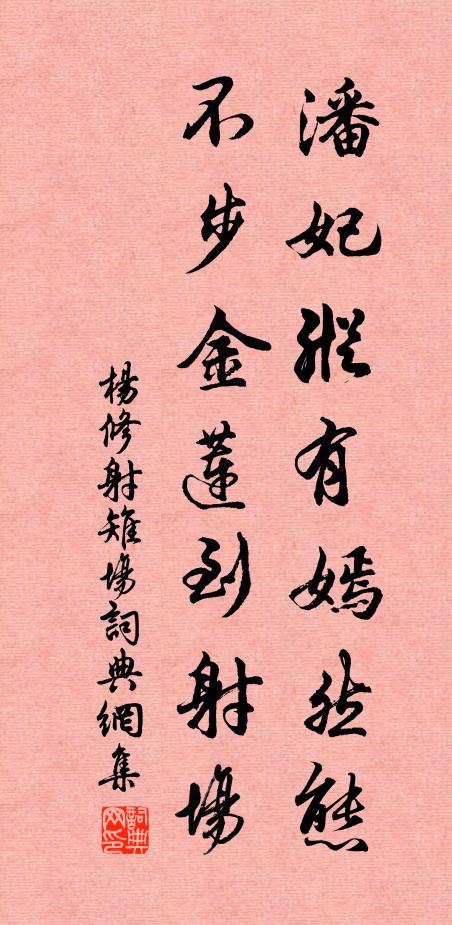 潘妃縱有嫣然態
不步金蓮到射場
楊修射雉場詞典網集
詞典网印